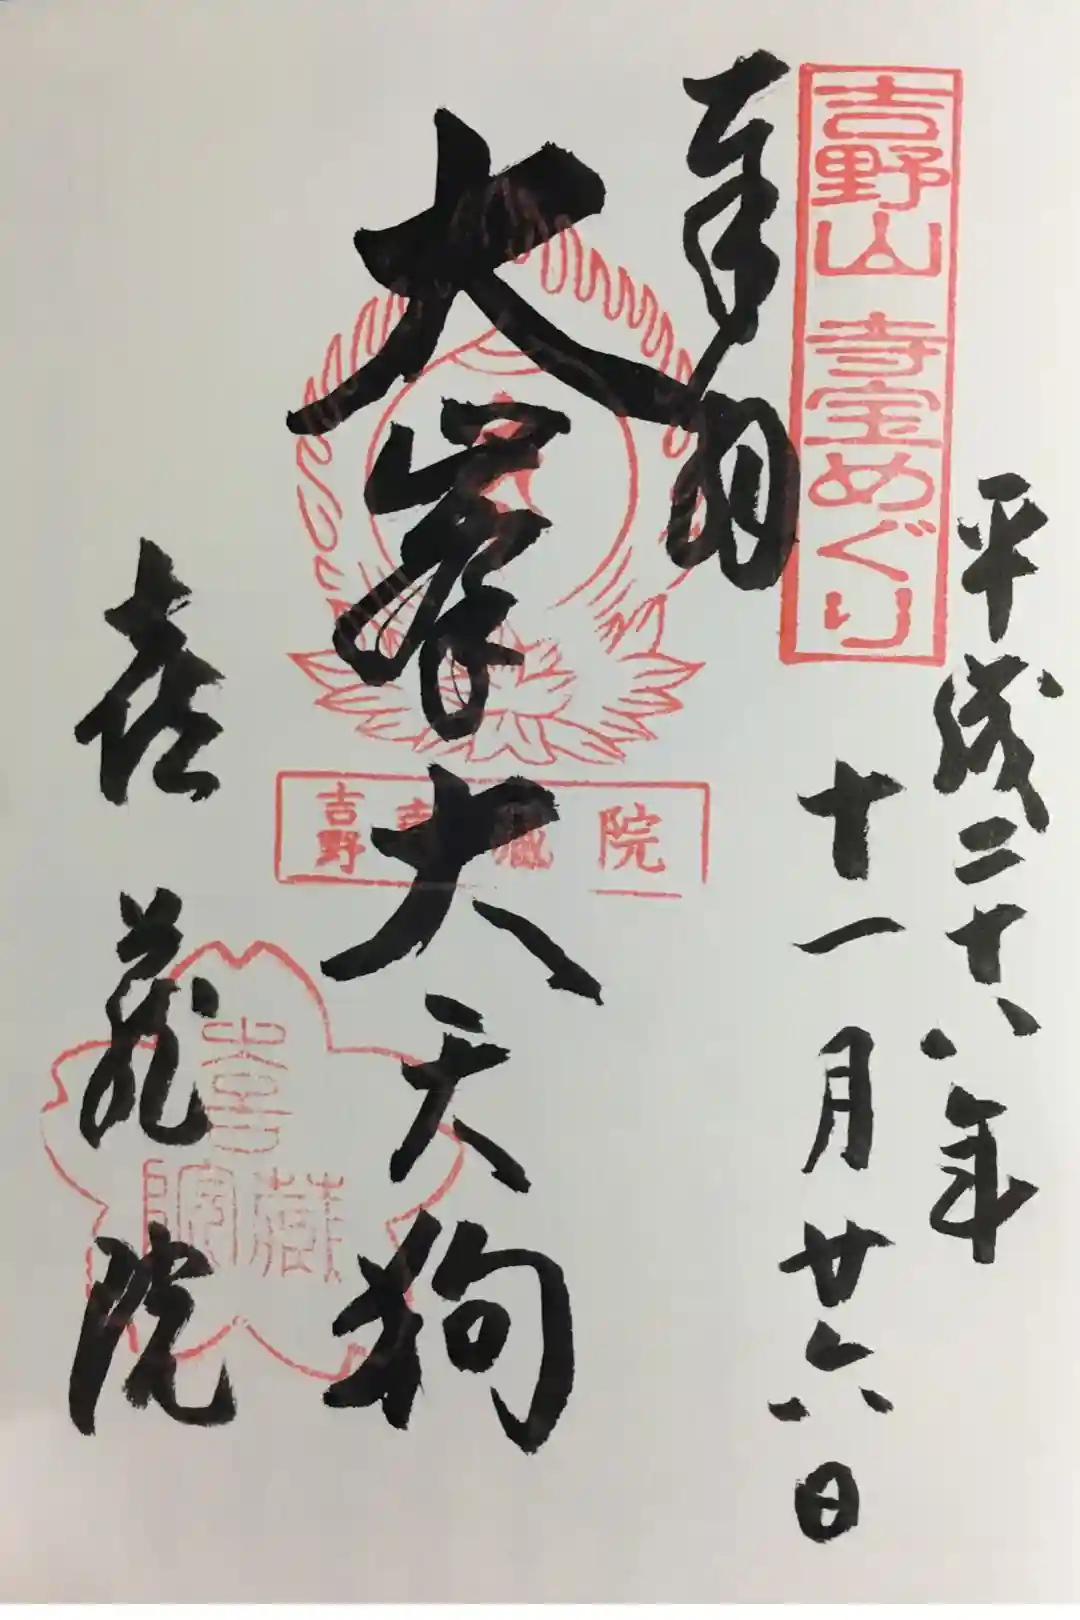 平成二十八年
十一月廿六日
吉野山 寺宝めぐり
奉拝
大峯大天狗
吉野喜蔵院
喜蔵院
喜藏院